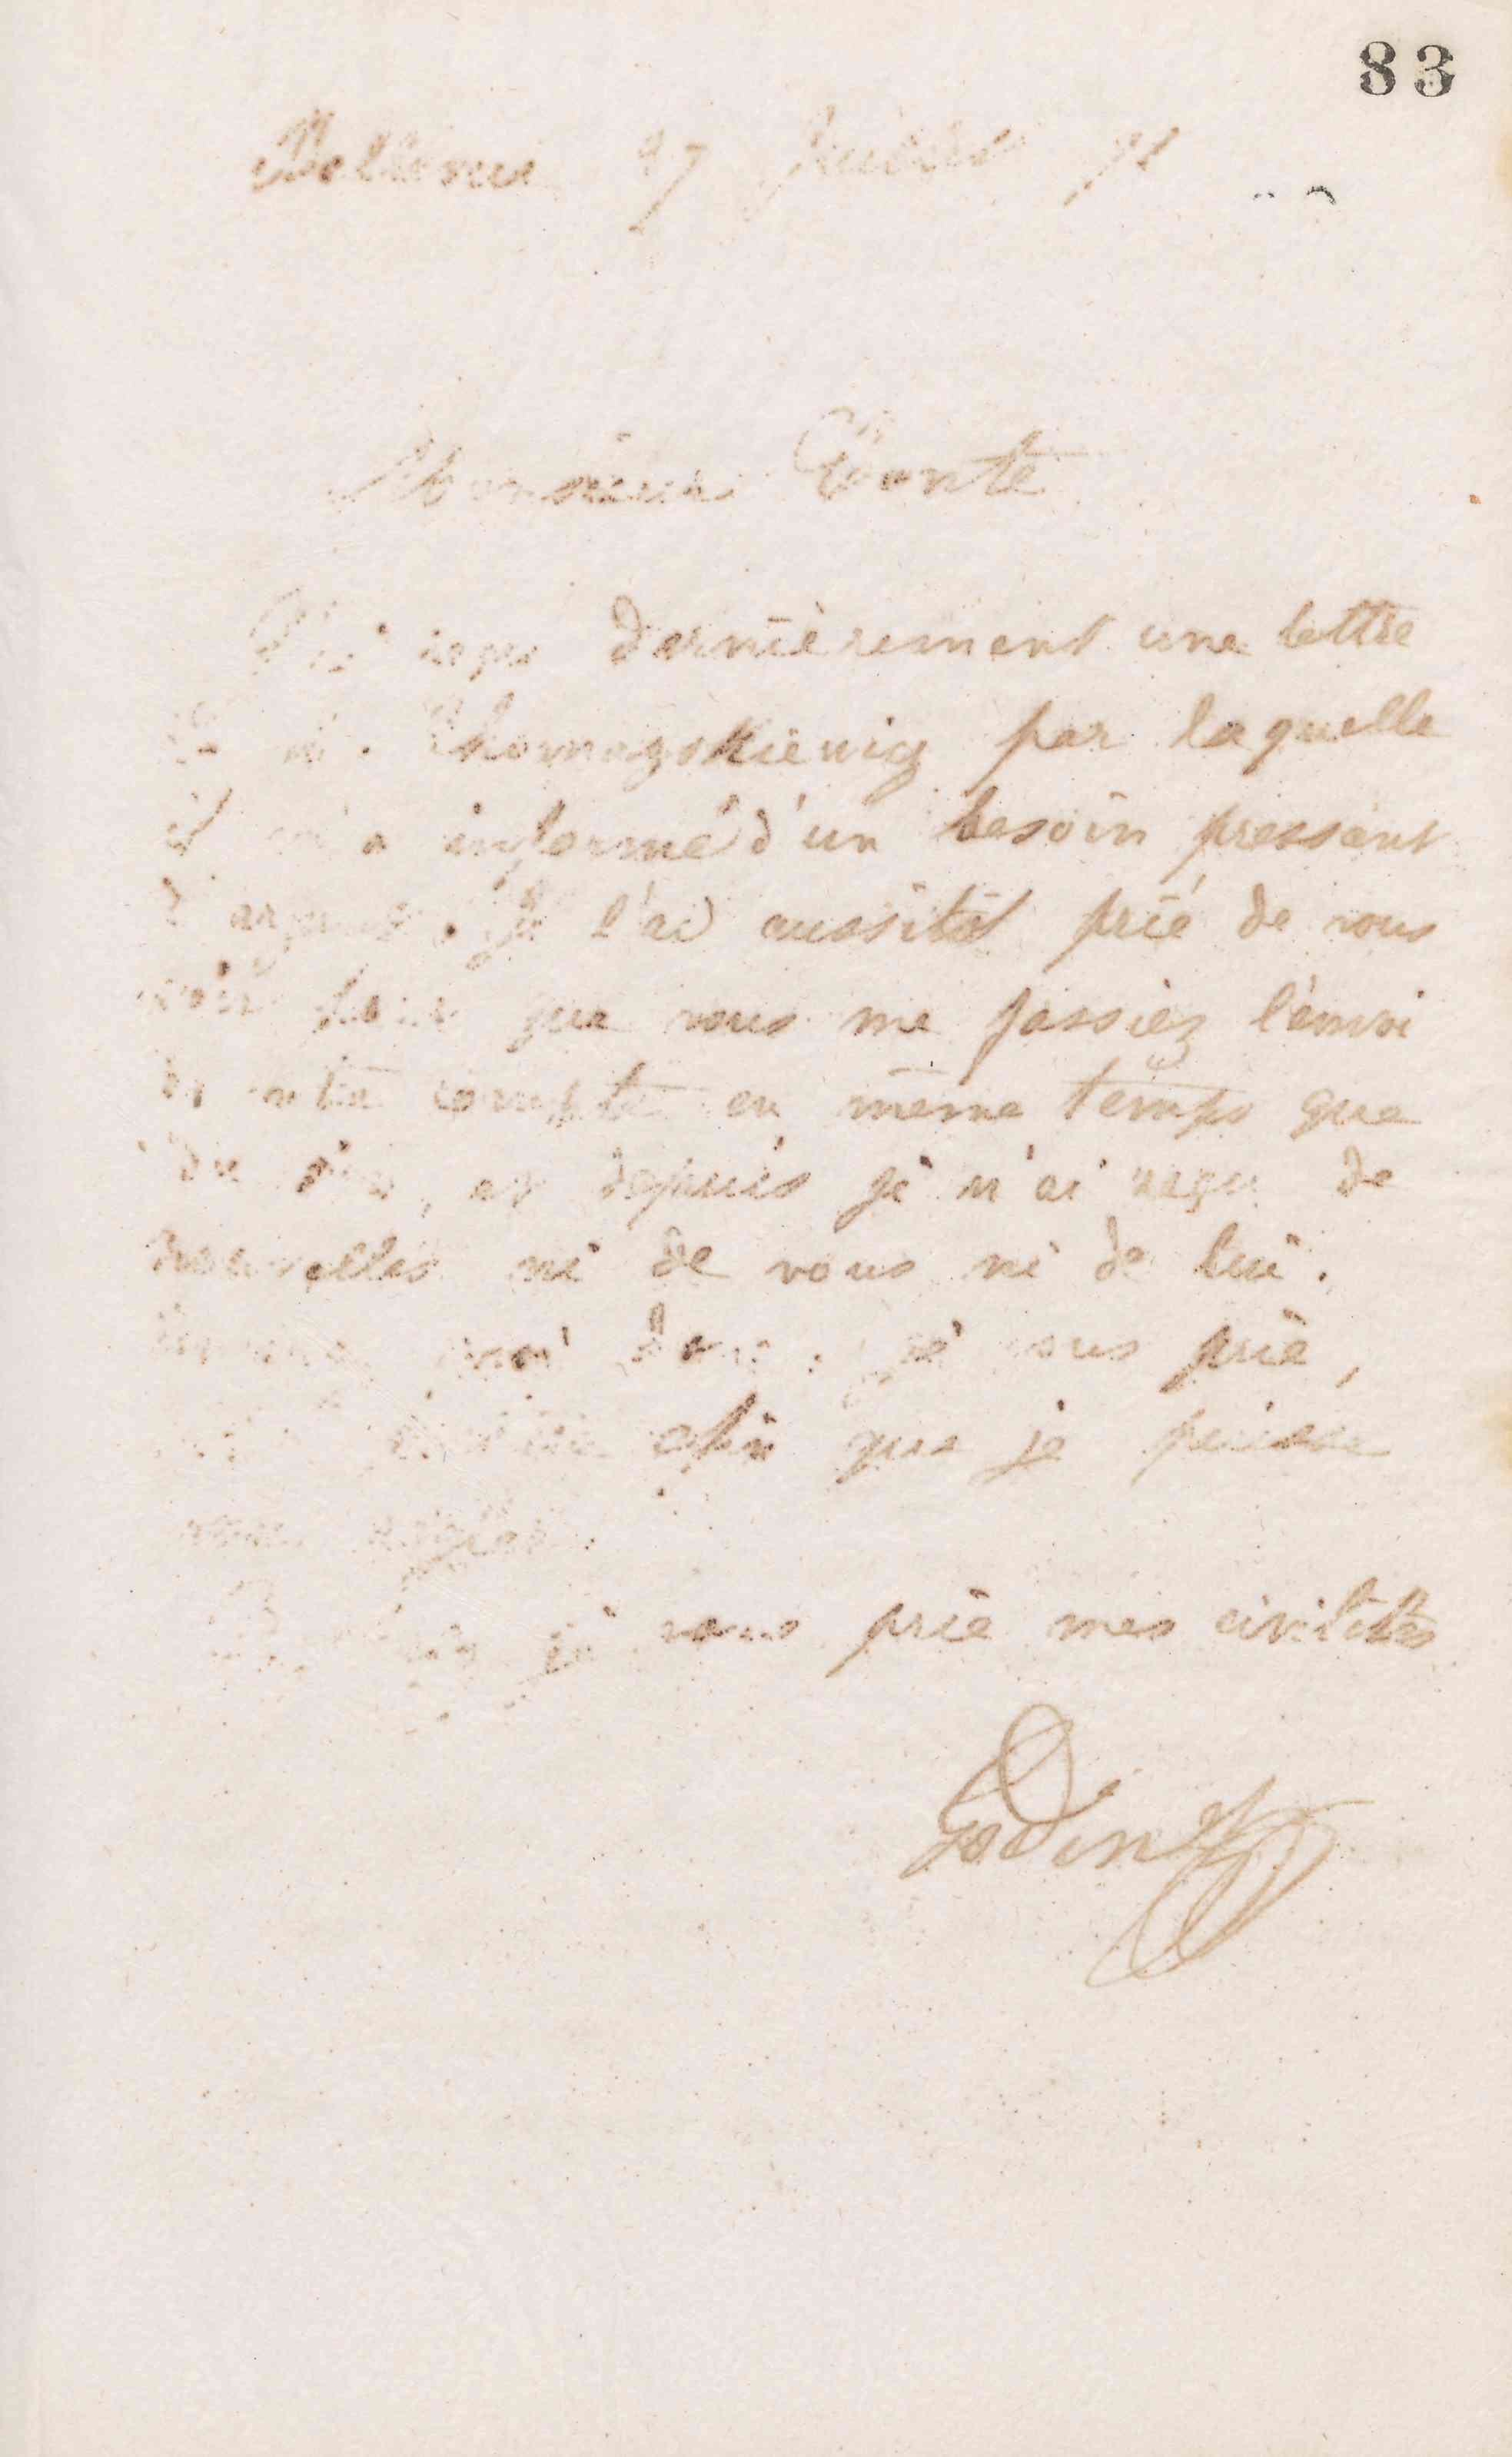 83
Bellevue 27 Juillet 71
Monsieur Conte
J'ai reçu dernièrement une lettre
de M. Thomaszkiewicz par laquelle
il m'a informé d'un besoin pressant
d'argent. Je l'ai aussitôt prié de vous
voir pour que vous me fassiez l'envoi
de votre compte en même temps que
du sien, et depuis je n'ai reçu de
nouvelles ni de vous ni de lui.
moi donc, je vous prie,
afin que je puisse
vous régler.
je vous prie mes civilités
Godin